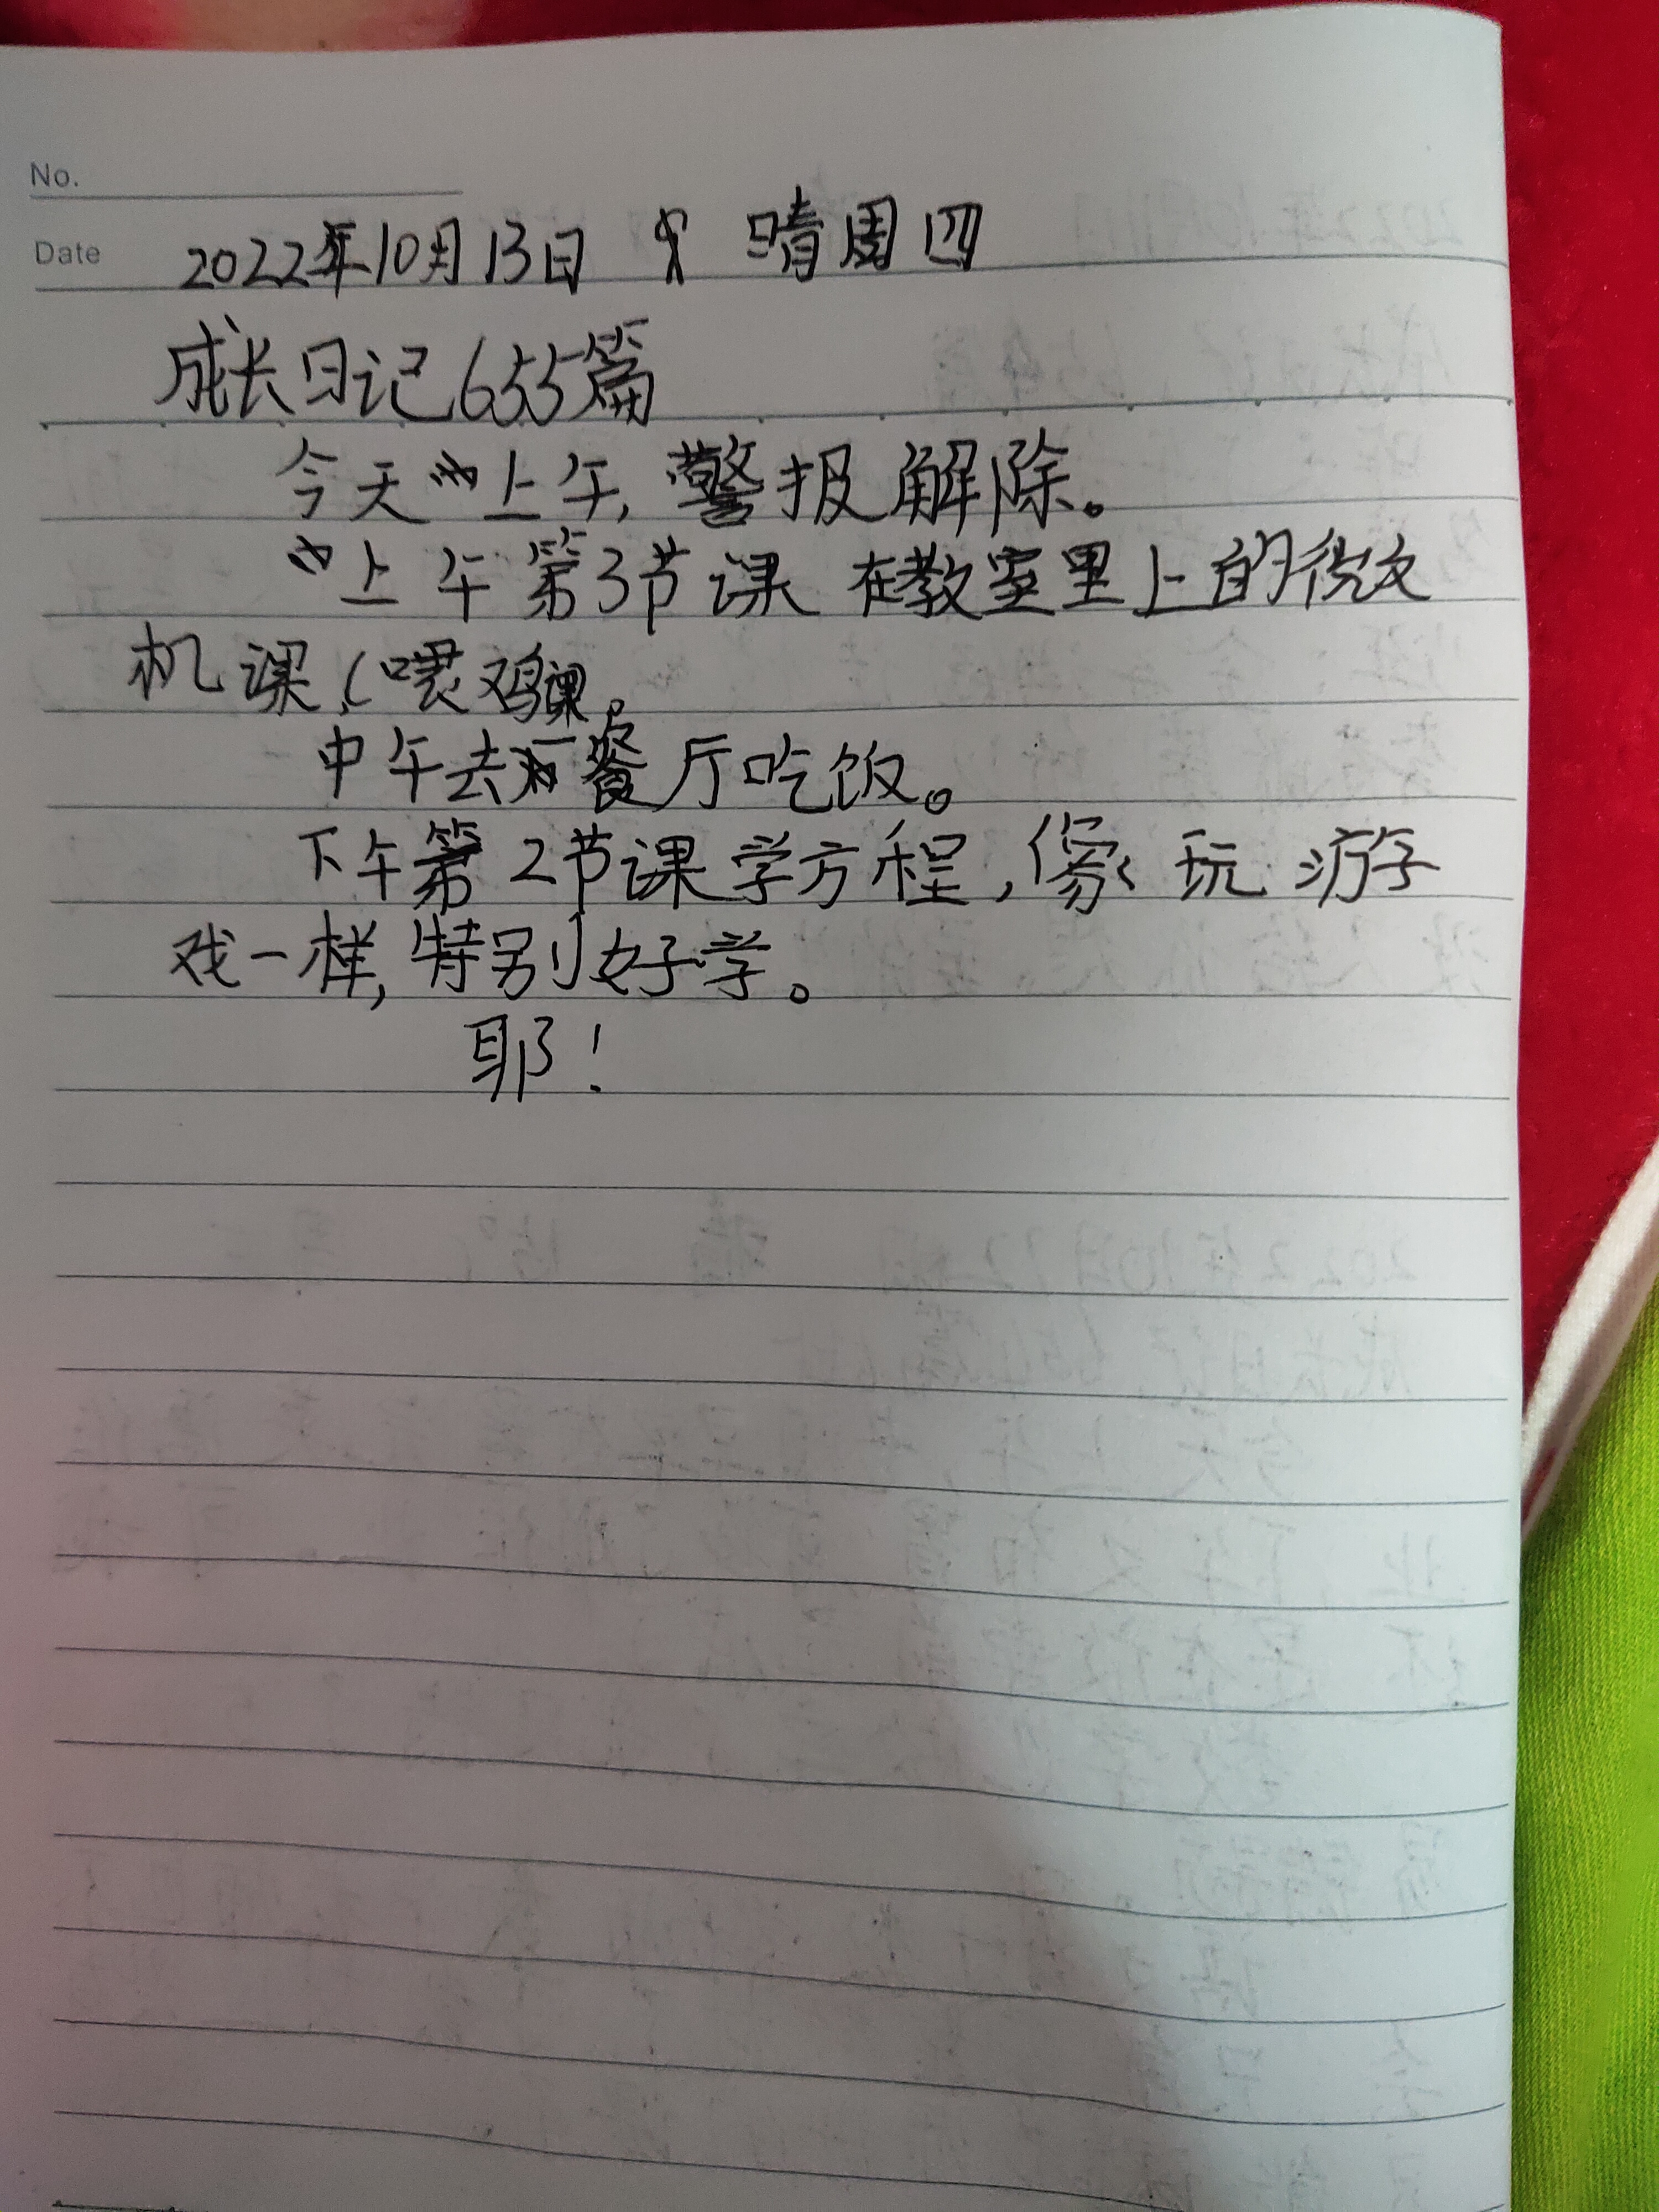 No.
Date 2022年10月13日 晴周四
成长日记655篇
今天上午,警报解除。
上午第3节课在教室里上的微
机课,(喂鸡课。
中午去餐厅吃饭。
下午第2节课学方程,像玩游
戏一样,特别好学。
耶!